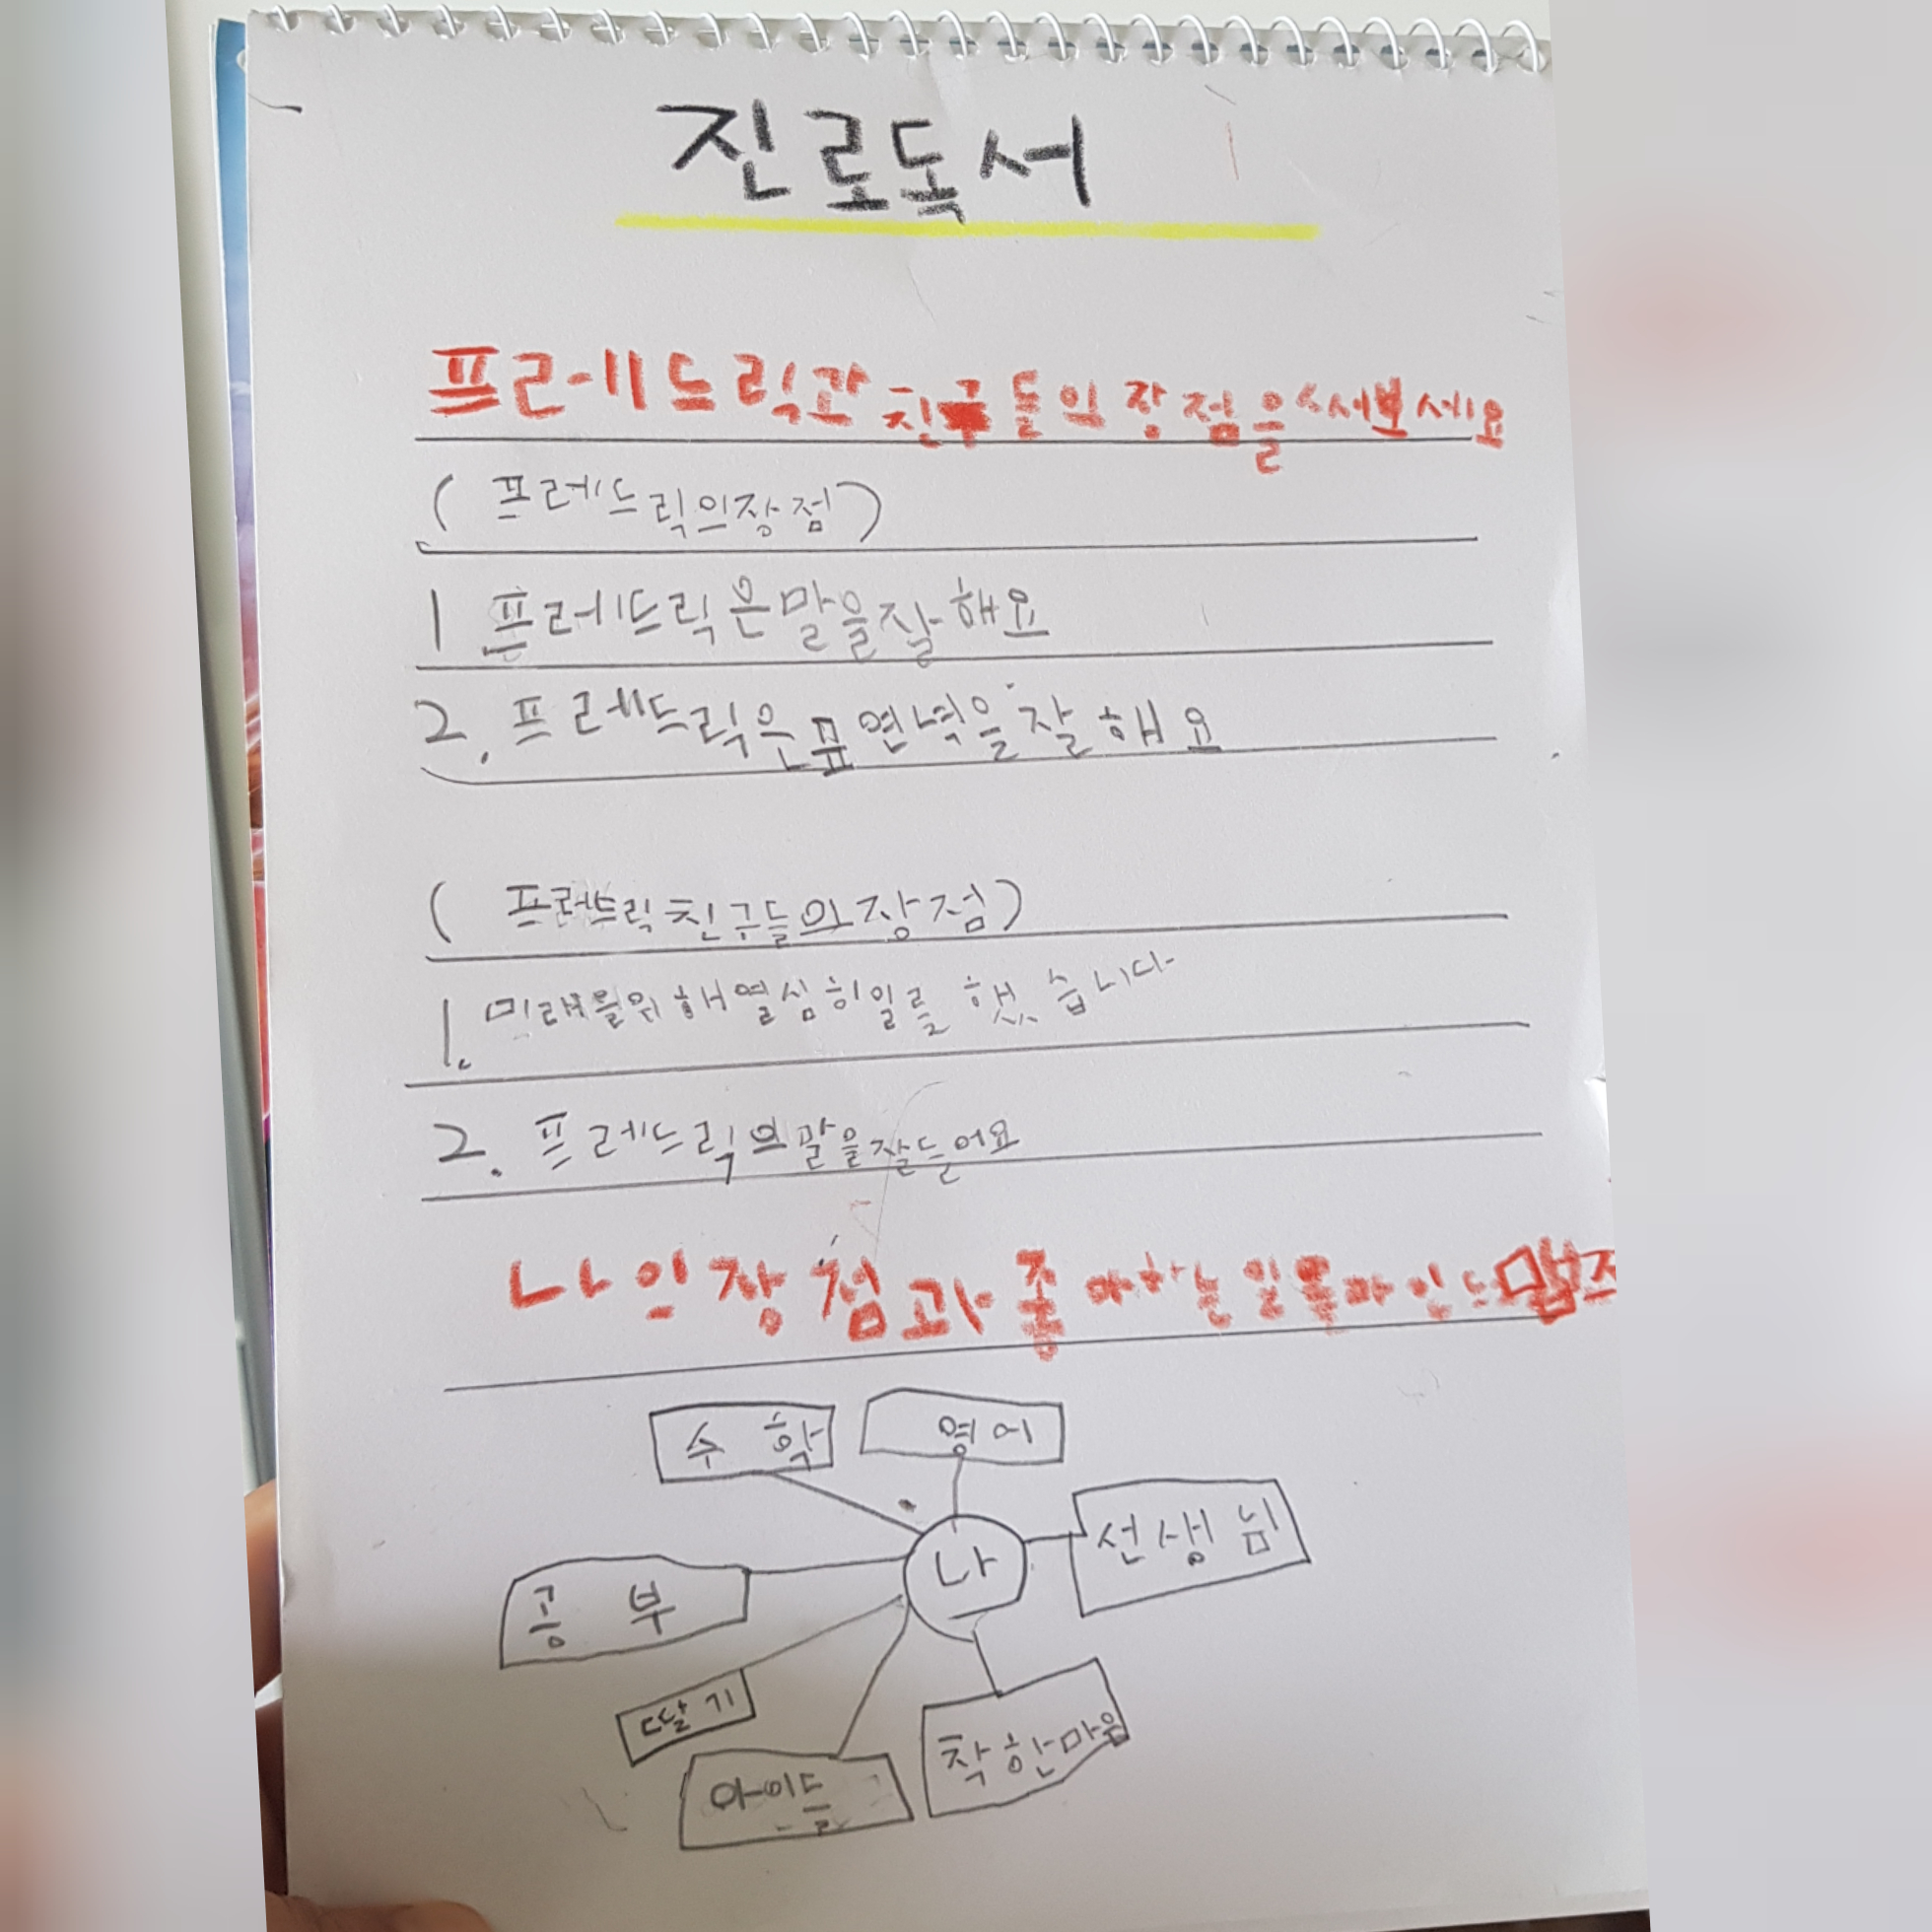 진로독서
프레드릭과 친구들의 장점을 써보세요
(프레드릭의장점)
1 프레드릭은말을잘해요
2. 프레드릭은표연력을잘해요
(프레드릭친구들의장점)
1. 미래를위해열심히일를 했습니다
2. 프레드릭의말을잘드어요
나의장점과좋아하는일를마인드맵즈
수학 영어
선생님
나
공부
딸기
착한마음
아이들